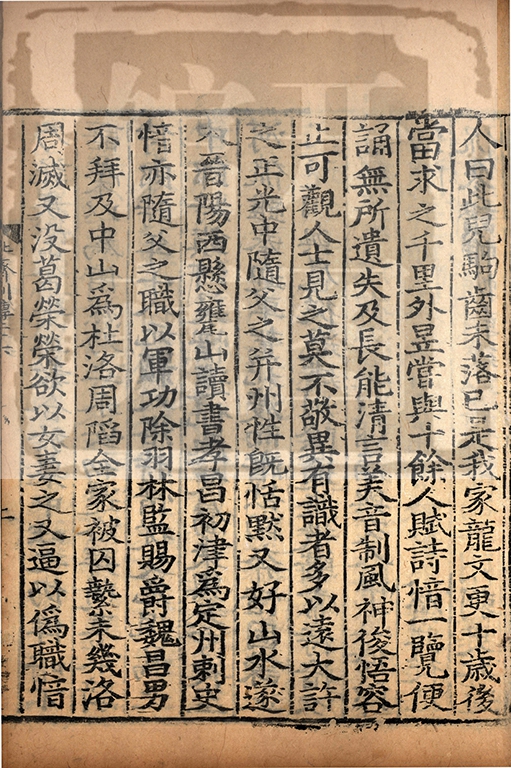 人曰此兒駒齒未落已是我家龍文更十歲後
當求之千里外昱嘗與十餘人賦詩愔一覽便
誦無所遺失及長能清言美音制風神俊悟容
止可觀人士見之莫不敬異有識者多以遠大許
之正光中隨父之并州性既恬默又好山水遂
入晉陽西懸甕山讀書孝昌初津爲定州刺史
愔亦隨父之職以軍功除羽林監賜爵魏昌男
不拜及中山爲杜洛周陷全家被囚縶未幾洛
周滅又没葛榮榮欲以女妻之又逼以僞職愔